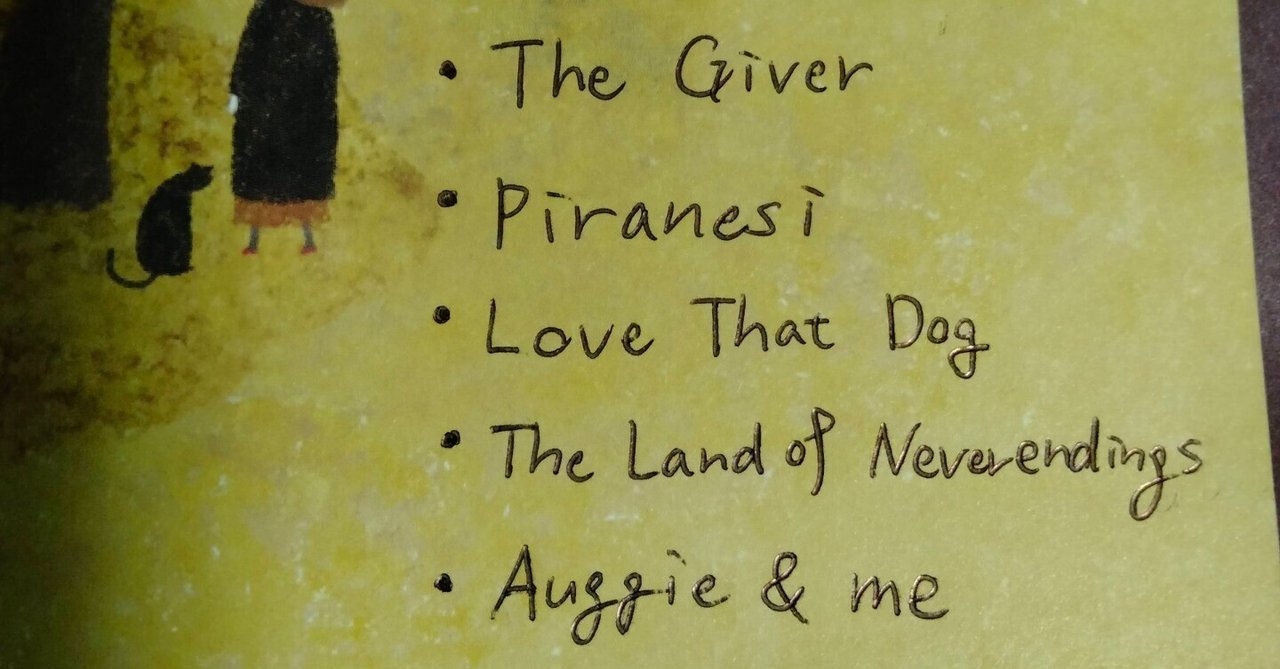 • The Giver
• Piranesi
• Love That Dog
• The Land of Neverendings
• Auggie & me